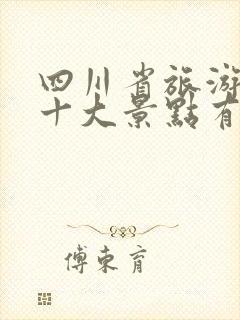 四川省旅游
十大景點有
傅東育